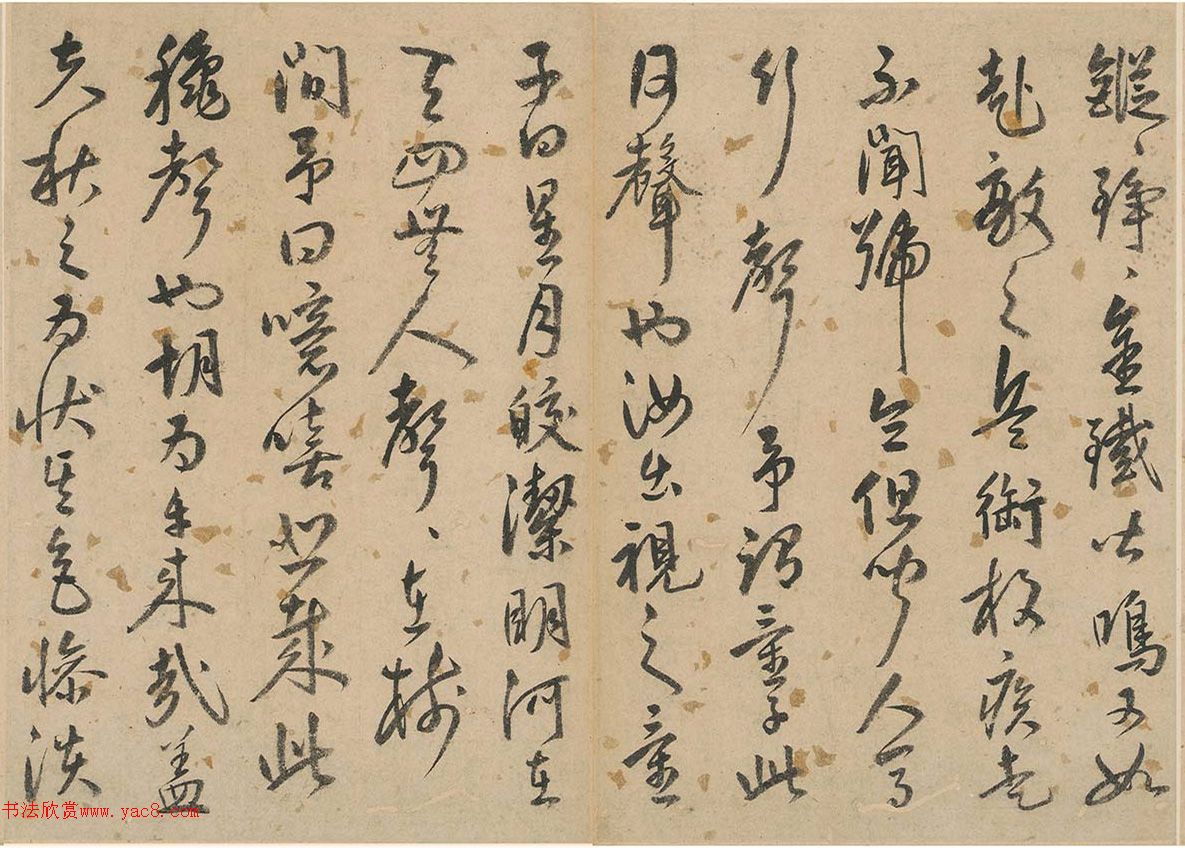 鏦〻錚〻金鐵皆鳴又如
赴敵之兵銜枚疾走
不聞號令但聞人馬
行聲予謂童子此
何聲也汝出視之童
子曰星月皎潔明河在
天四無人聲〻在樹
間予曰噫嘻悲哉此
穐聲也胡為乎來哉蓋
夫秋之為狀其色慘淡
书法欣赏www.yac8.com